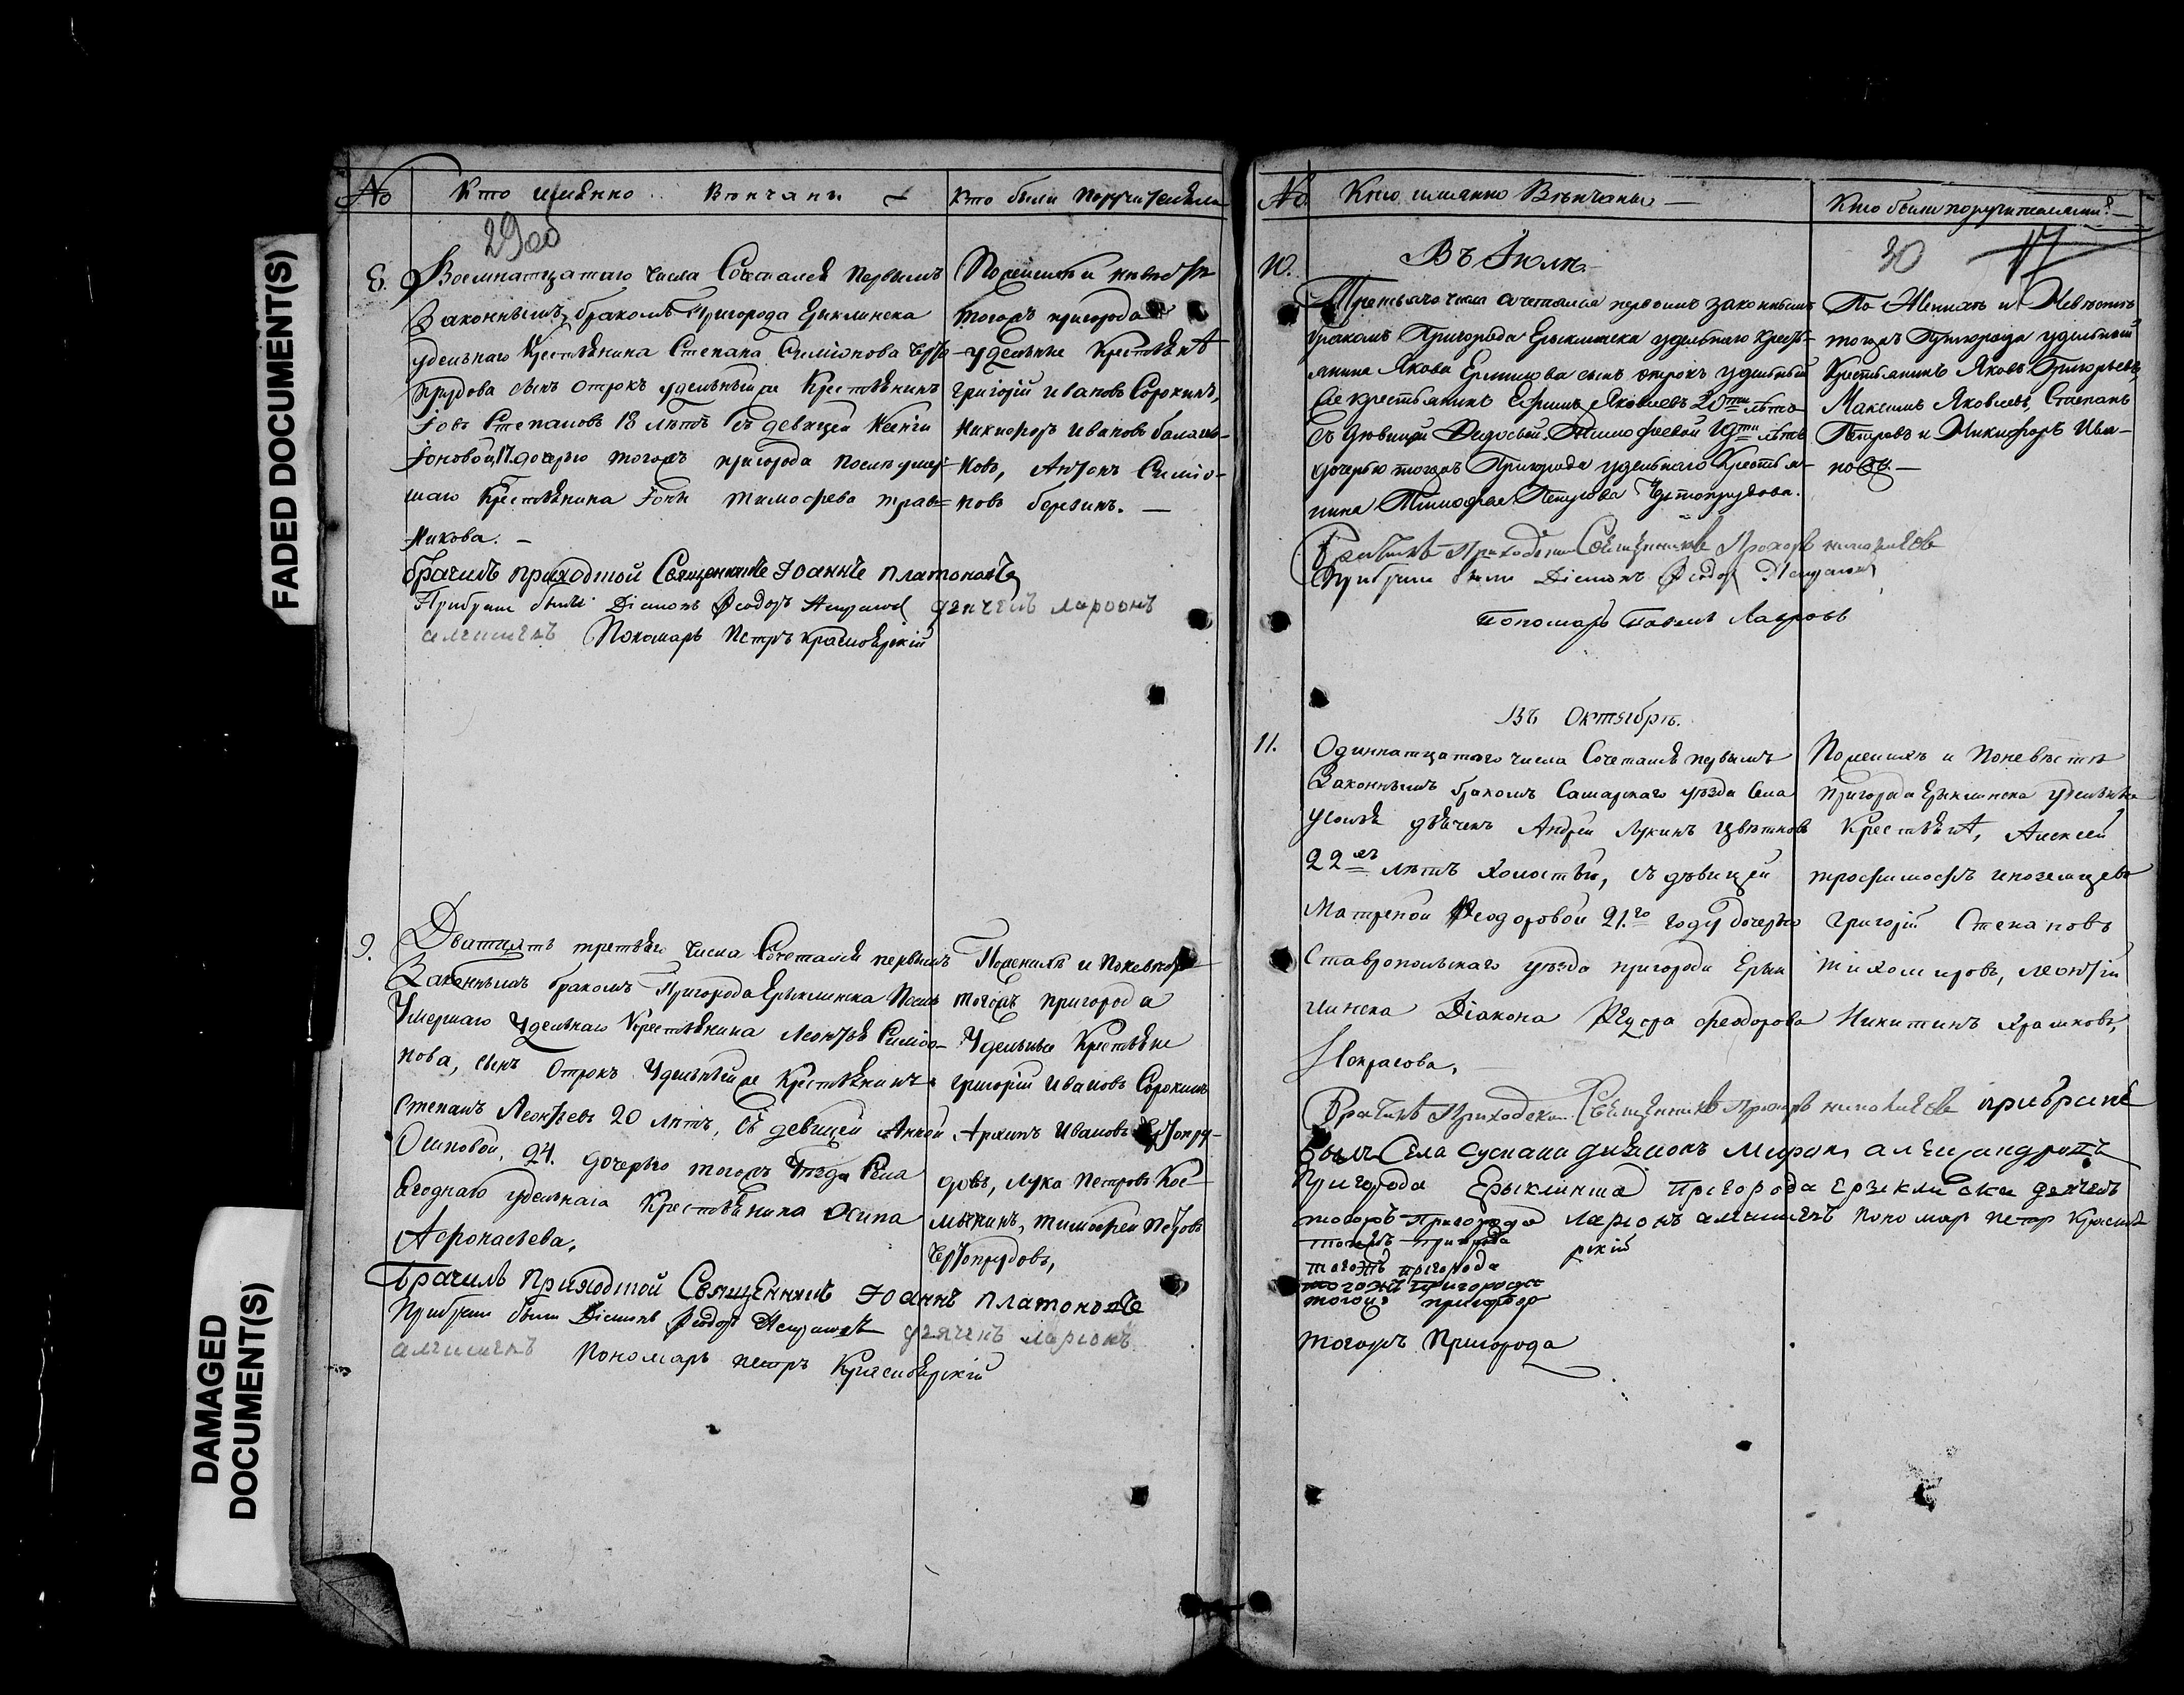 FADED DOCUMENT(S)
DAMAGED
DOCUMENT(S)
№ Кто именно Венчанъ Кто были Поручители
29об
8. Восемнатцатаго числа Сочетался первымъ
Законнымъ бракомъ Пригорода Ерыклинска
удельнаго крестьянина Степана Симіонова
прудова сынъ отрокъ удельный же Крестьянинъ
Іовъ Степановъ 18 лѣтъ съ девицей Ксенги
Іоновой 17. дочерью тогожъ пригорода послѣ умер
шаго крестьянина Іоны тимофева трав=
никова. —
По женихѣ и невѣстѣ
тогожъ пригорода
удельные Крестьянѣ
григорій ивановъ Сорокинъ,
никифоръ ивановъ балашо-
ковъ, Антонъ Симіо-
новъ березинъ. —
брачилъ приходской Священникъ Іоаннъ платоновъ
Прибраке были Діаконъ Феодоръ дьячекъ ларіонъ
алешинъ Пономарь Петръ Красноярскій
9. Дватцать третьяго числа Сочетался первымъ
Законнымъ бракомъ Пригорода Ерыклинска Послѣ
Умершаго Удельнаго Крестьянина Леонтья Симіо-
нова, сынъ Отрокъ Удельный же Крестьянинъ
Степанъ Леонтьевъ 20 лѣтъ, съ девицей Анной
Осиповой, 24. дочерью тогожъ Уезда Села
Ягоднаго удельнаго Крестьянина Осипа
Афонасьева,
По женихѣ и по невѣстѣ
тогожъ пригорода
Удельные Крестьяне
григорій Ивановъ Сорокинъ
Архипъ Ивановъ
довъ, лука Петровъ Кос-
мынинъ, тимофей Петровъ
Брачилъ приходской Священникъ Іоаннъ платоновъ
Прибраке были Діаконъ Феодоръ дьячекъ ларіонъ
алешинъ Пономарь петръ Красноярскій
№ Кто именно Вѣнчаны — Кто были поручителями? —
30 17
10. Въ Іюлѣ.
Третьяго числа сочетался первымъ законнымъ
бракомъ Пригорода Ерыклинска удельнаго кресть-
янина Якова Ермилова сынъ отрокъ удельный
же крестьянинъ Ефимъ Яковлевъ 20ти лѣтъ
съ дѣвицей Федосьей Тимофеевой 19ти лѣтъ
дочерью тогожъ Пригорода удельнаго Крестья-
нина Тимофея Петрова Чистопрудова.
По Женихѣ и Невѣстѣ
тогожъ Пригорода удельный
Крестьянинъ Яковъ Григорьевъ,
Максимъ Яковлевъ, Степанъ
Петровъ и Никифоръ Ива-
новъ —
Брачилъ Приходской Священникъ Прохоръ
Прибраке были Діаконъ Феодоръ
пономарь павелъ Лавровъ
Въ Октябрѣ.
11. Одиннатцатого числа Сочетался первымъ
Законнымъ бракомъ Самарскаго уѣзда Села
Усолья дьячекъ Андрей Лукинъ Цвѣтковъ
22хъ лѣтъ холостый, съ дѣвицей
Матреной Феодоровой 21.го году дочерью
Ставропольскаго уѣзда пригорода Ерык
линска Діакона Феодора феодорова
Некрасова,
По женихѣ и По невѣстѣ
пригорода Ерыклинска удельные
Крестьянѣ, Алексей
трофимовъ иноземцевъ
григорій Степановъ
тихомировъ, леонтій
Никитинъ Храмковъ,
Брачилъ Приходской Священникъ Прохоръ прибраке
былъ Села Сускана диаконъ Миронъ александровъ
Пригорода Ерыклинска Пригорода ерыклинска дьячекъ
тогожъ пригорода ларіонъ алешинъ пономар петр Красноя
рскій
тогожъ пригорода
тогожъ пригорода
тогожъ пригорода
тогожъ Пригорода